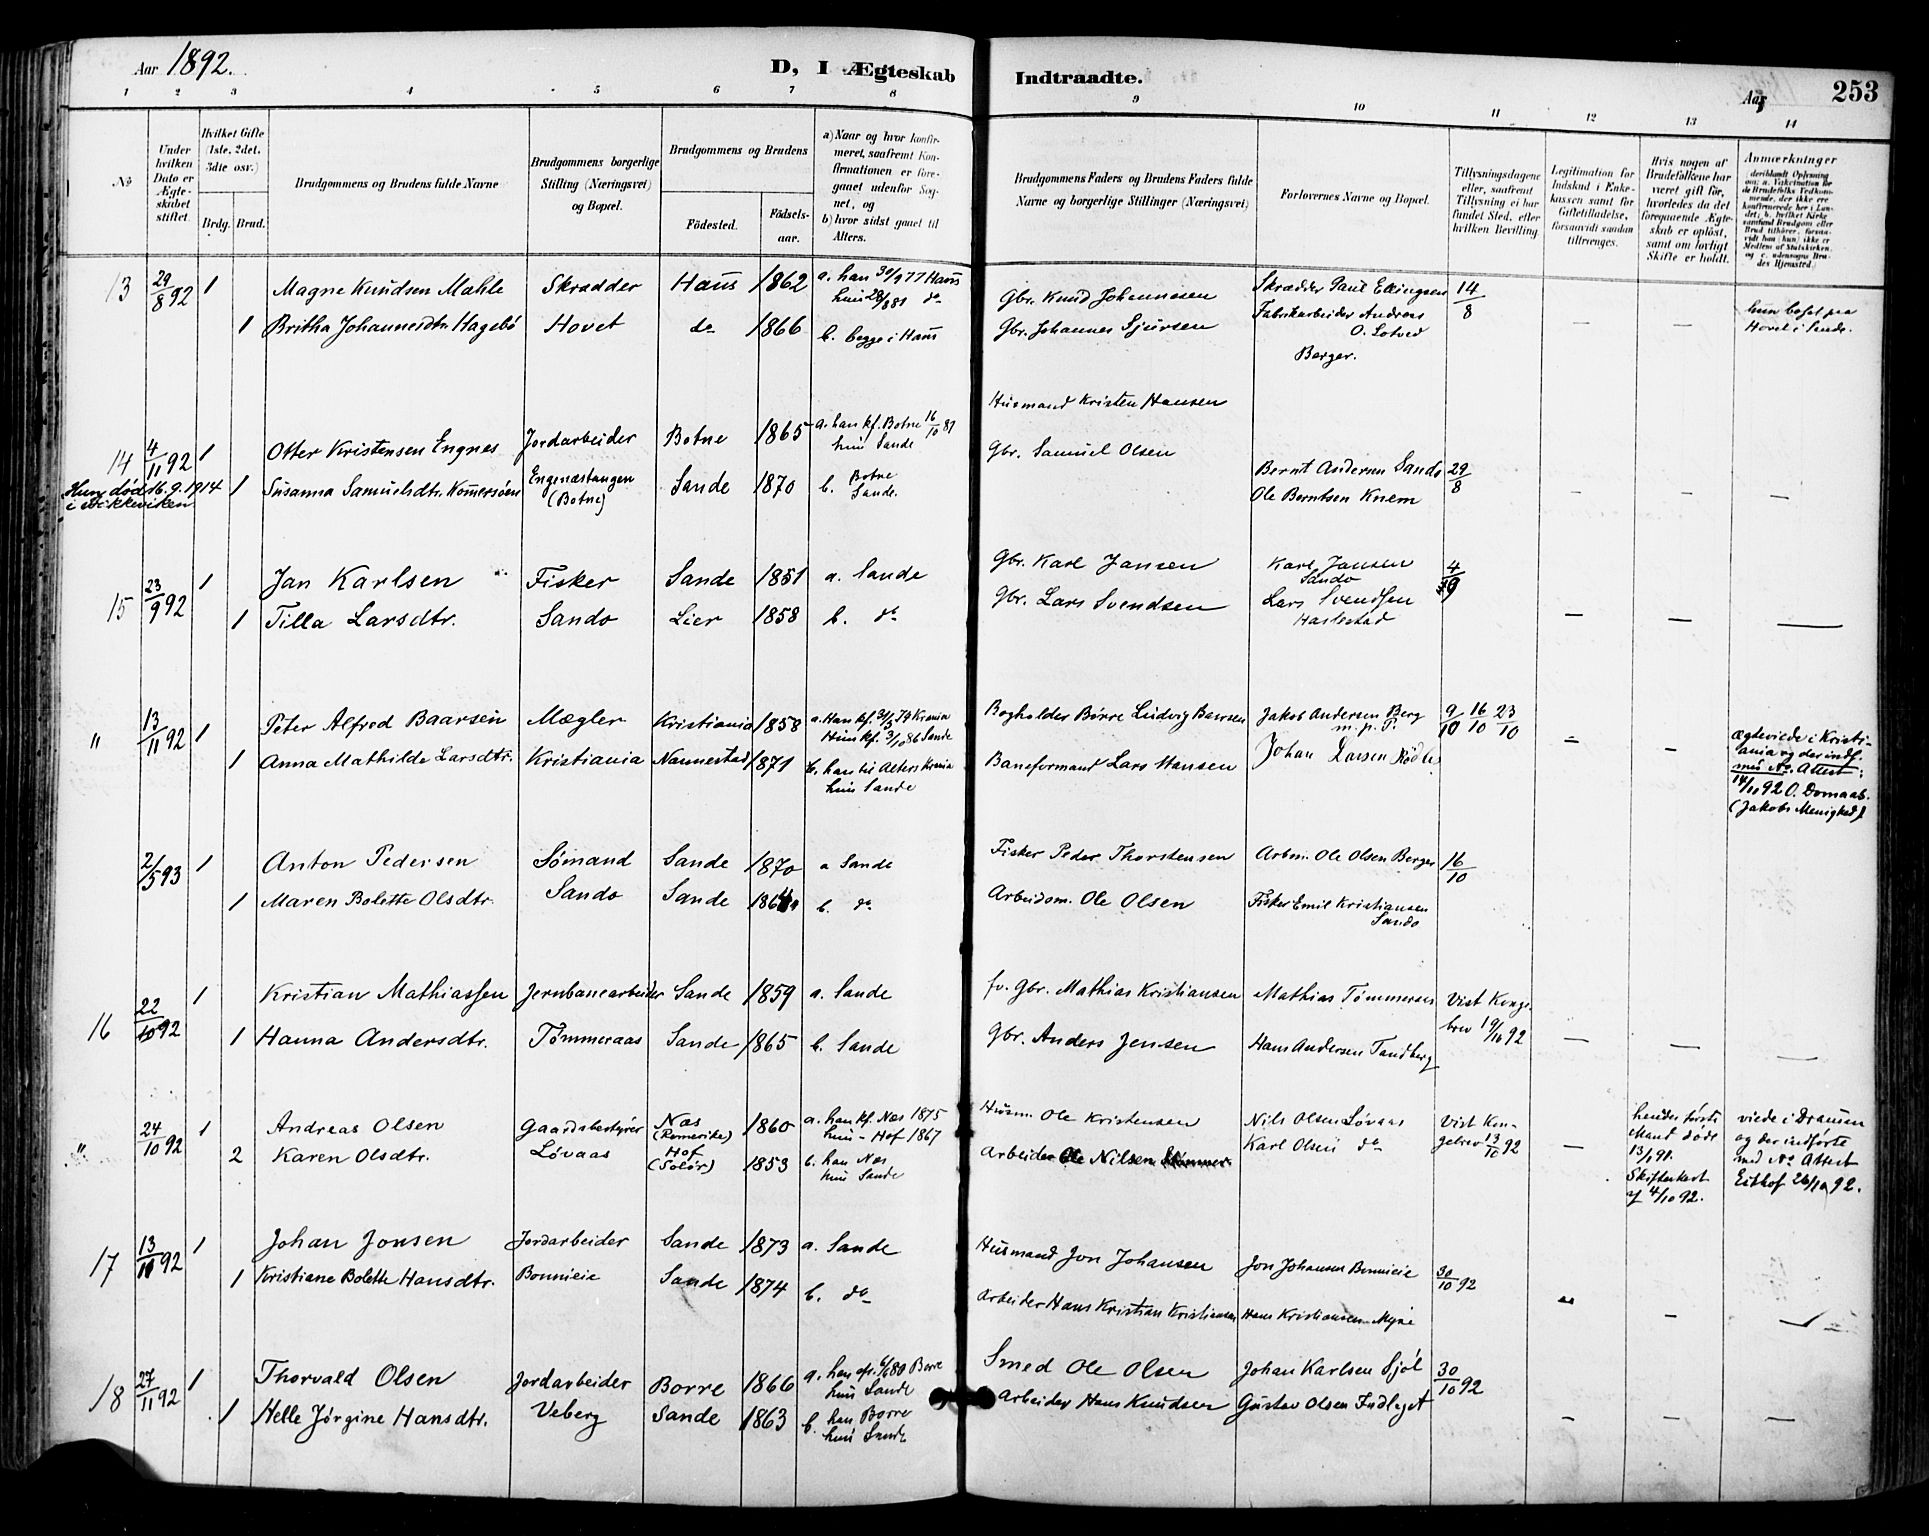 Aar 1892.
D, I Ægteskab Indtraadte.
Aar 253
1 2 3 4 5 6 7 8 9 10 11 12 13 14
No
Under hvilken Dato er Ægteskabet stiftet.
Hvilket Gifte (1ste, 2det, 3die osv.)
Brdg. Brud.
Brudgommens og Brudens fulde Navne
Brudgommens borgerlige Stilling (Næringsvei) og Bopæl.
Brudgommens og Brudens
Fødested.
Fødselsaar.
a) Naar og hvor konfirmeret, saafremt Konfirmationen er foregaaet udenfor Sognet, og
b) hvor sidst gaaet til Alters.
Brudgommens Faders og Brudens Faders fulde Navne og borgerlige Stillinger (Næringsvei)
Forlovernes Navne og Bopæl.
Tillysningsdagene eller, saafremt Tillysning ei har fundet Sted, efter hvilken Bevilling
Legitimation for Indskud i Enkekassen samt for Giftetilladelse, forsaavidt saadan tiltrænges.
Hvis nogen af Brudefolkene har været gift før, hvorledes da det foregaaende Ægteskab er opløst, samt om lovligt Skifte er holdt.
Anmærkninger
deriblandt Oplysning om: a. Vakcination for de Brudefolks Vedkommende, der ikke ere konfirmerede her i Landet; b. hvilket Kirkesamfund Brudgom eller Brud tilhører, forsaavidt han (hun) ikke er Medlem af Statskirken, og c. udensogns Brudes Hjemsted.
13 29/8 92 1 Magne Knudsen Mahle Skrædder Haus 1862 a. han 30/9 77 Haus Gbr. Knud Johannesen Skrædder Paul Ellingsen 14/8 hun bosat paa
hun 28/8 81 do
1 Britha Johannesdtr. Hagebø Hovet do 1866 b. begge i Haus Gbr. Johannes Sjursen Fabrikarbeider Andreas O. Solved Berger. — — Hovet i Sande.
14 4/11 92 1 Otter Kristensen Engnes Jordarbeider Botne 1865 a. han kf. Botne 16/10 81 Husmand Kristen Hansen
hun Sande
Hun død 16.9.1914
1 Susanna Samuelsdtr. Komersøen Engenæstangen (Botne) Sande 1870 b. Botne Sande. Gbr. Samuel Olsen Bernt Andersen Sando 29/8
Ole Berntsen Knem — — —
15 23/9 92 1 Jan Karlsen Fisker Sande 1851 a. Sande Gbr. Karl Jansen Karl Jansen Sando 4/9
1 Tilla Larsdtr. Sando Lier 1858 b. do Gbr. Lars Svendsen Lars Svendsen Haslestad — — —
" 13/11 92 1 Peter Alfred Baarsen Mægler Kristiania 1858 a. Han kf. Krania Bogholder Børre Ludvig Baarsen Jakob Andersen Berg m.p.P. 9/10 16/10 23/10
Hun kf. 3/10 86 Sande
1 Anna Mathilde Larsdtr. Kristiania Nannestad 1871 b. han til Alters Krania Baneformand Lars Hansen Johan Larsen — —
hun Sande
ægteviede i Kristiania og der indf. med No. Attest: 14/11 92 O. (Jakobs Menighed)
2/5 93 1 Anton Pedersen Sømand Sande 1870 a Sande Fisker Peder Thorstensen Arbm. Ole Olsen Berger 16/10
1 Maren Bolette Olsdtr. Sando Sande b. do Arbeidsm. Ole Olsen Fisker Emil Kristiansen Sando
16 22/10 92 1 Kristian Mathiassen Jernbanearbeider Sande 1859 a. Sande fv. Gbr. Mathias Kristiansen Mathias Tømmeraas Vist Kongebrev 19/10 92
1 Hanna Andersdtr. Tømmeraas Sande 1865 b. Sande Gbr. Anders Jensen Hans Andersen Tandberg — — —
" 24/10 92 1 Andreas Olsen Gaardsbestyrer Næs (Romerike) 1860 a. han kf. Næs 1875 Husm. Ole Kristensen Nils Olsen Løvaas Vist Kongebrev 13/10 92
hun – Hof 1867
2 Karen Olsdtr. Løvaas Hof (Solør) 1853 b. han Næs Arbeider Ole Nilsen Karl Olsen do —
hun Sande
hendes første Mand døde 13/1 91. Skifteattest af 4/10 92.
viede i Dramen og der indførte med No. Attest 26/10 92.
17 13/11 92 1 Johan Jonsen Jordarbeider Sande 1873 a. Sande Husmand Jon Johansen Jon Johansen Bonnieie 30/10 92
1 Kristiane Bolette Hansdtr. Bonnieie Sande 1874 b. do Arbeider Hans Kristian Kristiansen Hans Kristiansen Myre — — —
18 27/11 92 1 Thorvald Olsen Jordarbeider Borre 1866 a. han 80 Borre Smed Ole Olsen Johan Karlsen Sjøl 30/10 92
hun Sande
1 Helle Jørgine Hansdtr. Veberg Sande 1863 b. han Borre Arbeider Hans Knudsen Gustav Olsen Indlaget — — —
hun Sande